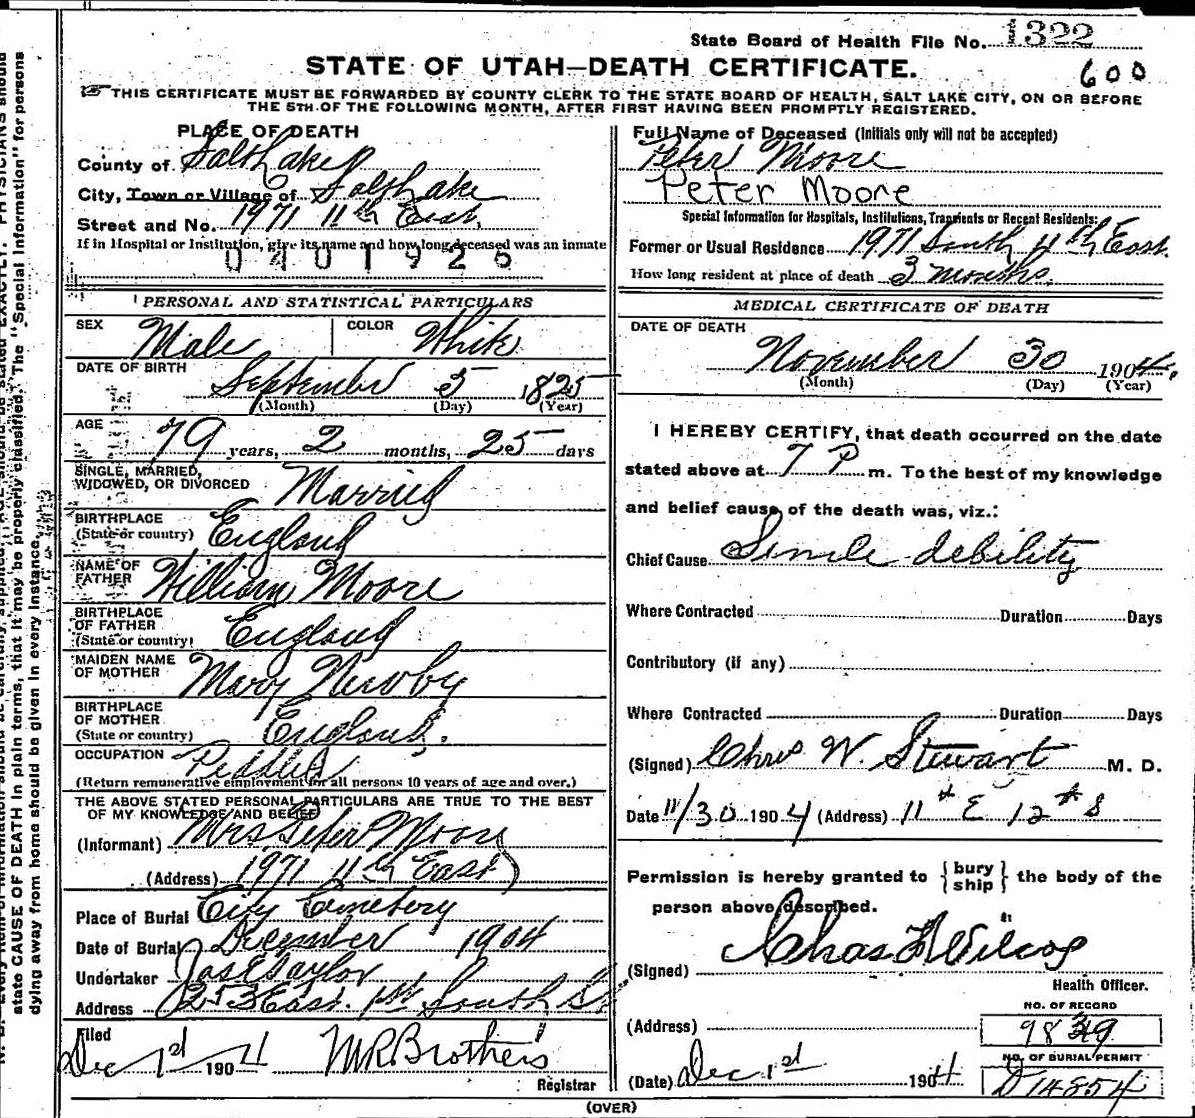 State Board of Health File No. 1322
STATE OF UTAH—DEATH CERTIFICATE.
600
THIS CERTIFICATE MUST BE FORWARDED BY COUNTY CLERK TO THE STATE BOARD OF HEALTH, SALT LAKE CITY, ON OR BEFORE
THE 5TH OF THE FOLLOWING MONTH, AFTER FIRST HAVING BEEN PROMPTLY REGISTERED.
PLACE OF DEATH
County of Salt Lake
City, Town or Village of Salt Lake
Street and No. 1971 11th East
If in Hospital or Institution, give its name and how long deceased was an inmate
0401925
PERSONAL AND STATISTICAL PARTICULARS
SEX Male COLOR White
DATE OF BIRTH
September 5 1825
(Month) (Day) (Year)
AGE
79 years, 2 months, 25 days
SINGLE, MARRIED,
WIDOWED, OR DIVORCED Married
BIRTHPLACE
(State or country) England
NAME OF
FATHER William Moore
BIRTHPLACE
OF FATHER
(State or country) England
MAIDEN NAME
OF MOTHER Mary Newby
BIRTHPLACE
OF MOTHER
(State or country) England.
OCCUPATION Peddler
(Return remunerative employment for all persons 10 years of age and over.)
THE ABOVE STATED PERSONAL PARTICULARS ARE TRUE TO THE BEST
OF MY KNOWLEDGE AND BELIEF
(Informant) Mrs Peter Moore
(Address) 1971 11th East
Place of Burial City Cemetery
Date of Burial December 1904
Undertaker Jos E Taylor
Address 253 East 1st South St
Filed
Dec 1st 1904 M R Brothers
Registrar
Full Name of Deceased (Initials only will not be accepted)
Peter Moore
Peter Moore
Special Information for Hospitals, Institutions, Transients or Recent Residents:
Former or Usual Residence 1971 South 11th East.
How long resident at place of death 3 months.
MEDICAL CERTIFICATE OF DEATH
DATE OF DEATH
November 30 1904.
(Month) (Day) (Year)
I HEREBY CERTIFY, that death occurred on the date
stated above at 7 P m. To the best of my knowledge
and belief cause of the death was, viz.:
Chief Cause Senile debility
Where Contracted Duration Days
Contributory (if any)
Where Contracted Duration Days
(Signed) Chas W. Stewart M. D.
Date 11/30 1904 (Address) 11th E 12th S
Permission is hereby granted to {bury
ship} the body of the
person above described.
(Signed) Chas L Wilcox
Health Officer.
(Address)
NO. OF RECORD
9839
NO. OF BURIAL PERMIT
(Date) Dec 1st 1904 D 14854
(OVER)
state CAUSE OF DEATH in plain terms, that it may be properly classified. The "Special Information" for persons
dying away from home should be given in every instance.